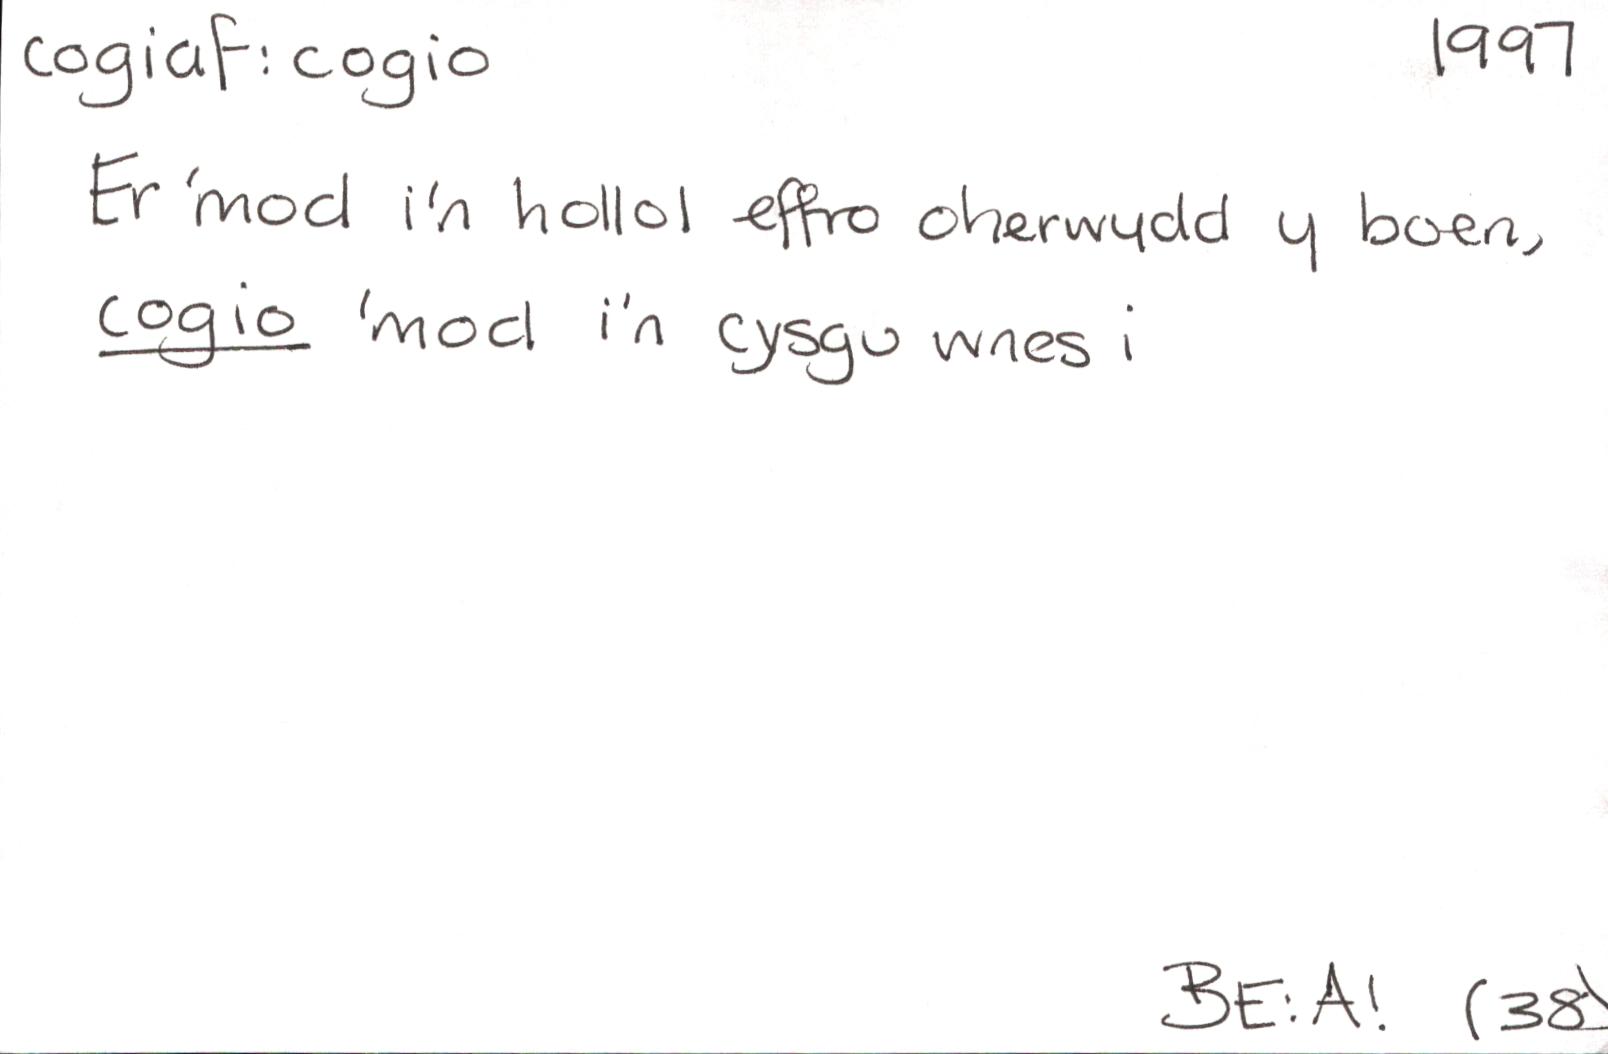 cogiaf: cogio 1997
Er 'mod i'n hollol effro oherwydd y boen,
cogio 'mod i'n cysgu wnes i
BE: A! (38)